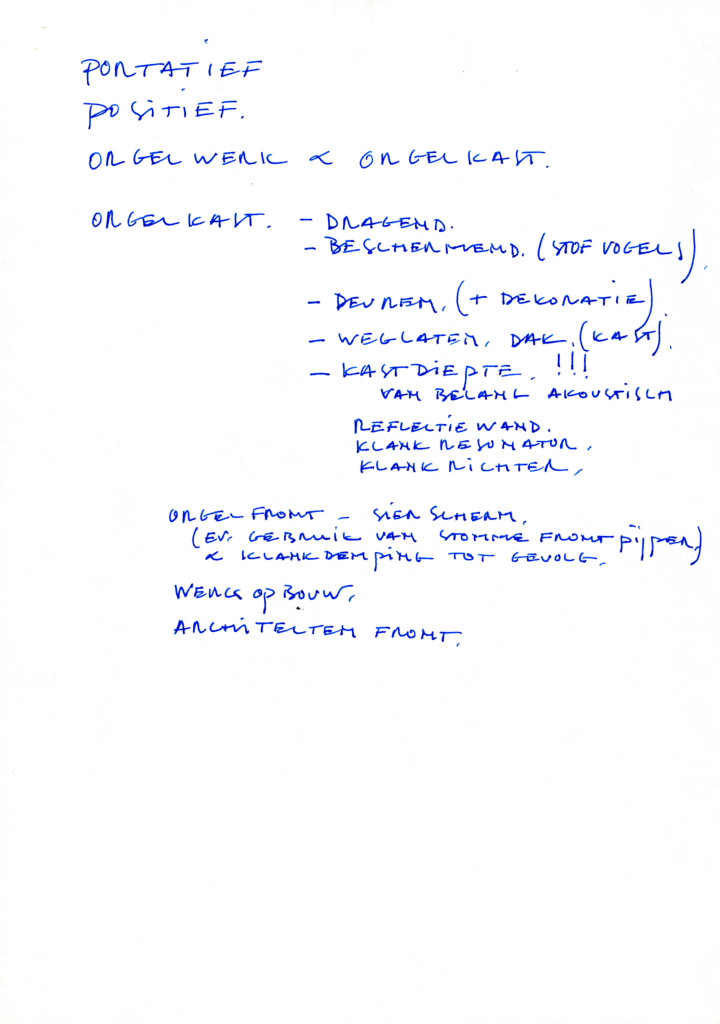 PORTATIEF
POSITIEF.
ORGELWERK & ORGELKAST.
ORGELKAST. - DRAGEND.
- BESCHERMEND. (STOF VOGELS).
- DEUREN, (+ DEKORATIE)
- WEGLATEN, DAK, (KAST).
- KASTDIEPTE. !!!
VAN BELANG AKOUSTISCH
REFLECTIE WAND.
KLANK RESONATOR,
KLANK RICHTER,
ORGELFRONT - SIERSCHERM,
(EV. GEBRUIK VAN STOMME FRONTPIJPEN)
& KLANKDEMPING TOT GEVOLG.
WERCKOPBOUW,
ARCHITECTEN FRONT.